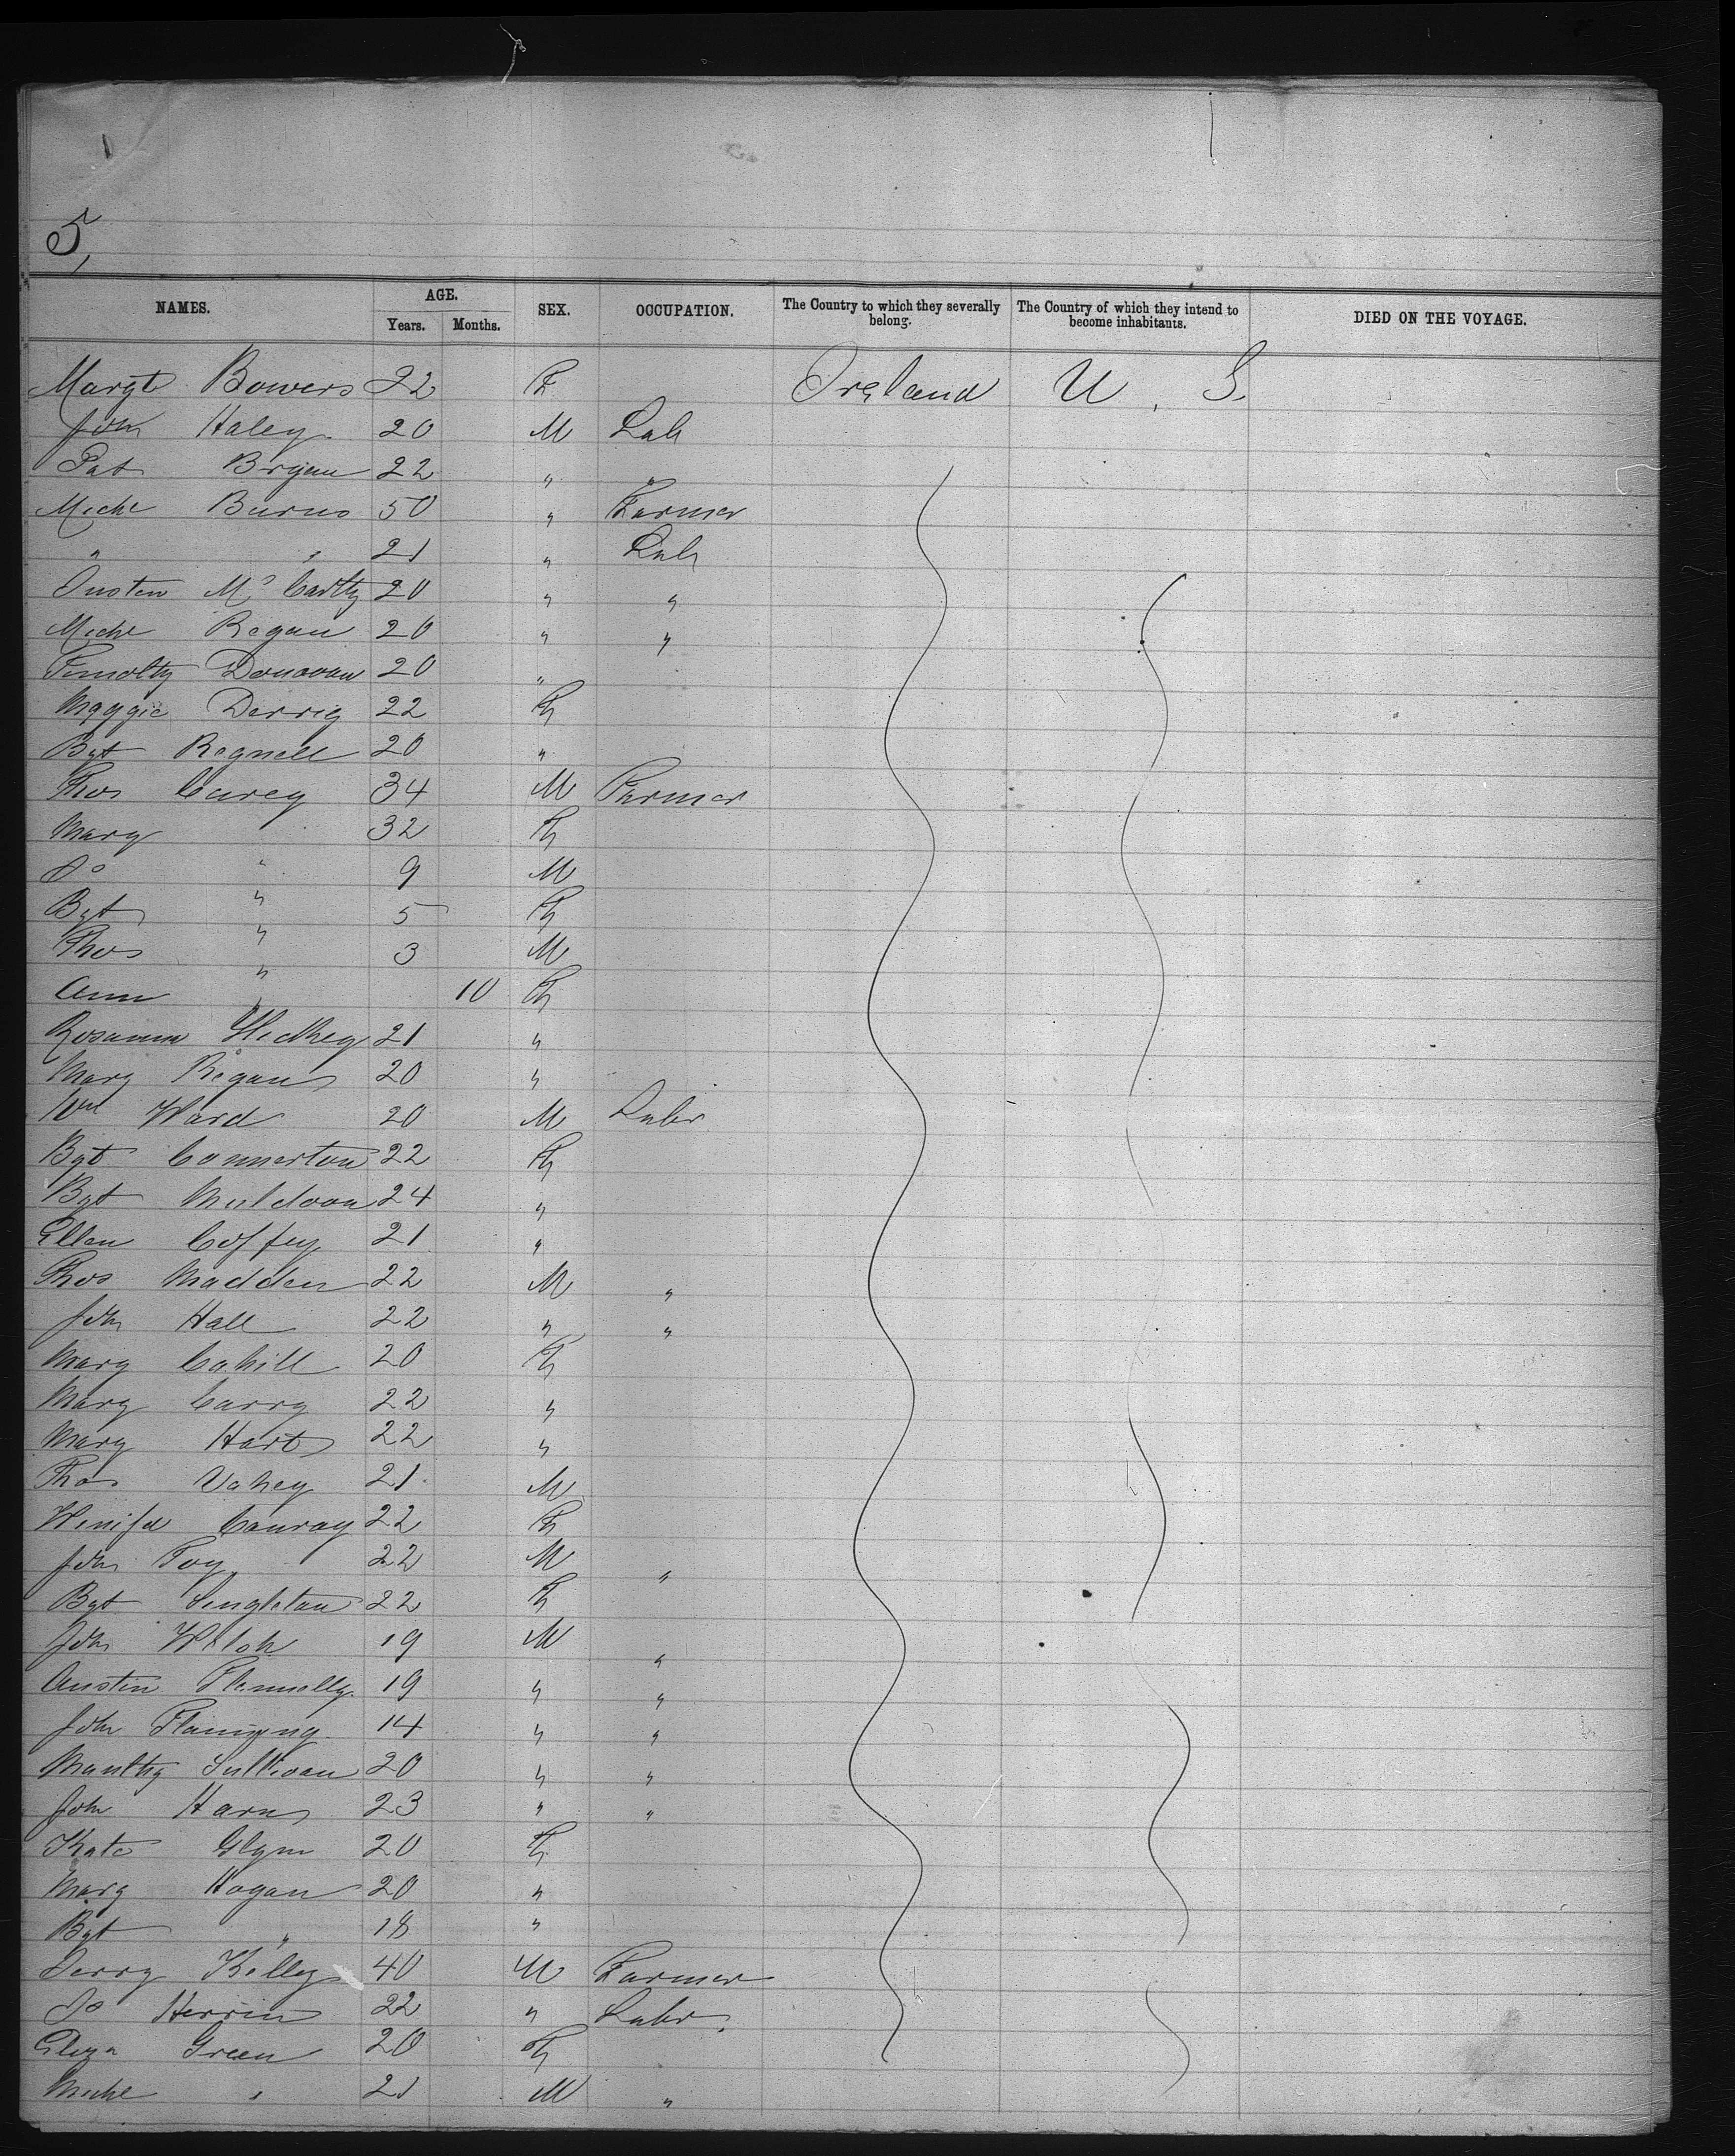 5,
NAMES. AGE. SEX. OCCUPATION. The Country to which they severally belong. The Country of which they intend to become inhabitants. DIED ON THE VOYAGE.
Years. Months.
Margt Bowers 22 F Ireland U. S.
John Haley 20 M Lab
Pat Bryan 22 " "
Michl Burns 50 " Farmer
" " 21 " Lab
Austen McCarthy 20 " "
Michl Regan 20 " "
Timothy Donovan 20 "
Maggie Derrig 22 F
Bgt Regnell 20 "
Thos Carey 34 M Farmer
Mary " 32 F
Do " 9 M
Bgt " 5 F
Thos " 3 M
Ann " 10 F
Rosanna 21 "
Mary Regan 20 "
Wm Ward 20 M Labr
Bgt Connerton 22 F
Bgt Muldoon 24 "
Ellen Coffey 21 "
Thos Madden 22 M "
John Hall 22 " "
Mary Cahill 20 F
Mary Carry 22 "
Mary Hart 22 "
Thos Vahey 21 M
Winifd Conroy 22 F
John Foy 22 M "
Bgt Singleton 22 F
John Welch 19 M "
Austin Flannelly 19 " "
John Flannyng 14 " "
Sullivan 20 " "
John Harn 23 " "
Kate Glynn 20 F
Mary Hogan 20 "
Bgt " 18 "
Kelley 40 M Farmer
Do Herrin 22 " Labr.
Eliza Green 20 F
Michl " 21 M "